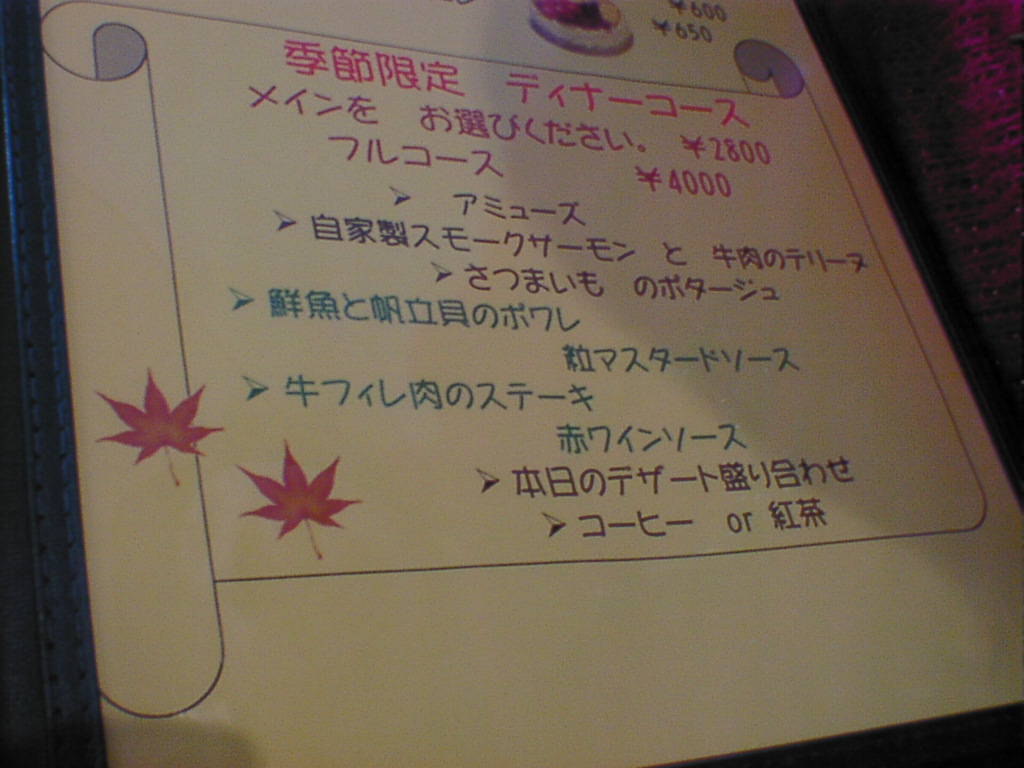 ¥600
¥650
季節限定　ディナーコース
メインを　お選びください。 ¥2800
フルコース ¥4000
➢ アミューズ
➢ 自家製スモークサーモン と 牛肉のテリーヌ
➢ さつまいも のポタージュ
➢ 鮮魚と帆立貝のポワレ
粒マスタードソース
➢ 牛フィレ肉のステーキ
赤ワインソース
➢ 本日のデザート盛り合わせ
➢ コーヒー or 紅茶